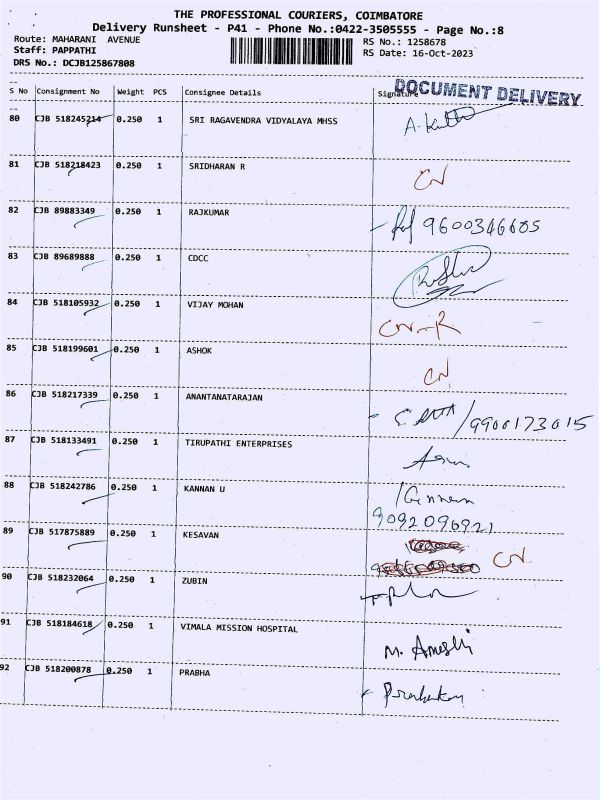 THE PROFESSIONAL COURIERS, COIMBATORE
Delivery Runsheet - P41 - Phone No.:0422-3505555 - Page No.:8
Route: MAHARANI AVENUE
RS No.: 1258678
Staff: PAPPATHI
RS Date: 16-Oct-2023
DRS No.: DCJB125867808
DOCUMENT DELIVERY
S No Consignment No Weight PCS Consignee Details Signature
80 CJB 518245214 0.250 1 SRI RAGAVENDRA VIDYALAYA MHSS
81 CJB 518218423 0.250 1 SRIDHARAN R CN
82 CJB 89883349 0.250 1 RAJKUMAR 9600346685
83 CJB 89689888 0.250 1 CDCC
84 CJB 518105932 0.250 1 VIJAY MOHAN CN-R
85 CJB 518199601 0.250 1 ASHOK CN
86 CJB 518217339 0.250 1 ANANTANATARAJAN /9900173015
87 CJB 518133491 0.250 1 TIRUPATHI ENTERPRISES
88 CJB 518242786 0.250 1 KANNAN U
9092096921
89 CJB 517875889 0.250 1 KESAVAN CN
90 CJB 518232064 0.250 1 ZUBIN
91 CJB 518184618 0.250 1 VIMALA MISSION HOSPITAL M.
92 CJB 518200878 0.250 1 PRABHA